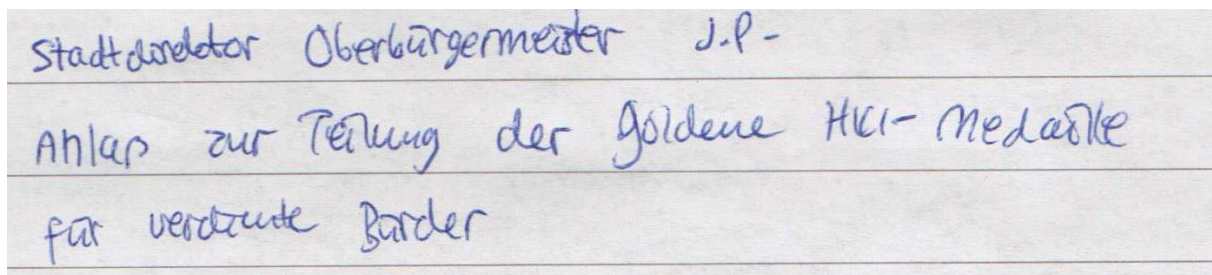 Stadtdirektor Oberbürgermeister J.P.-
Anlaß zur Teilung der goldene HKI-Medaille
für verdiente Bürder